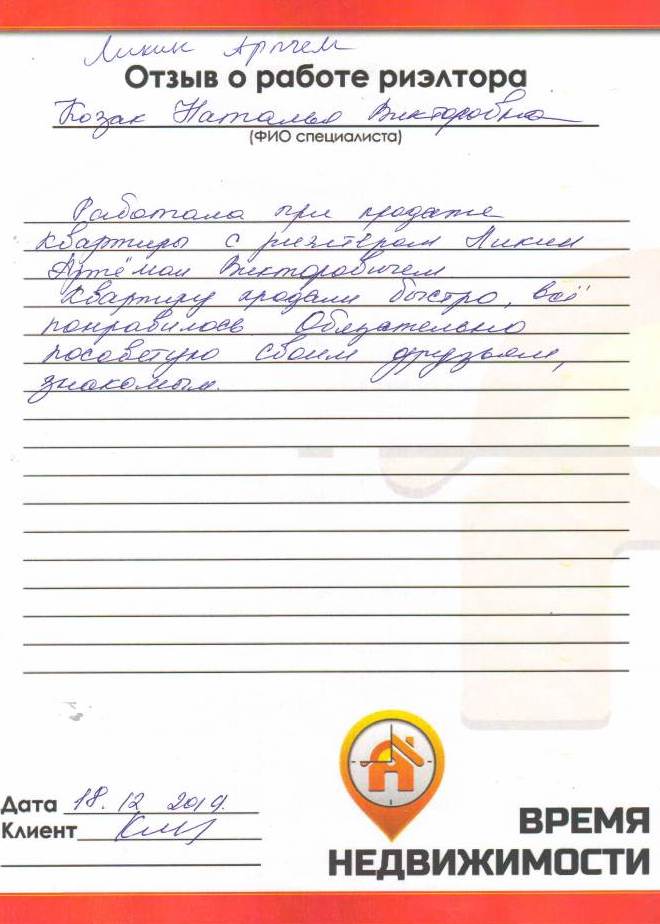 Ликин Артём
Отзыв о работе риэлтора
Козак Наталья Викторовна
(ФИО специалиста)
Работала при продаже
квартиры с риэлтером Ликин
Артёмом Викторовичем
Квартиру продали быстро, всё
понравилось Обязательно
посоветую своим друзьям,
знакомым.
Дата 18.12 2019.
Клиент
ВРЕМЯ
НЕДВИЖИМОСТИ